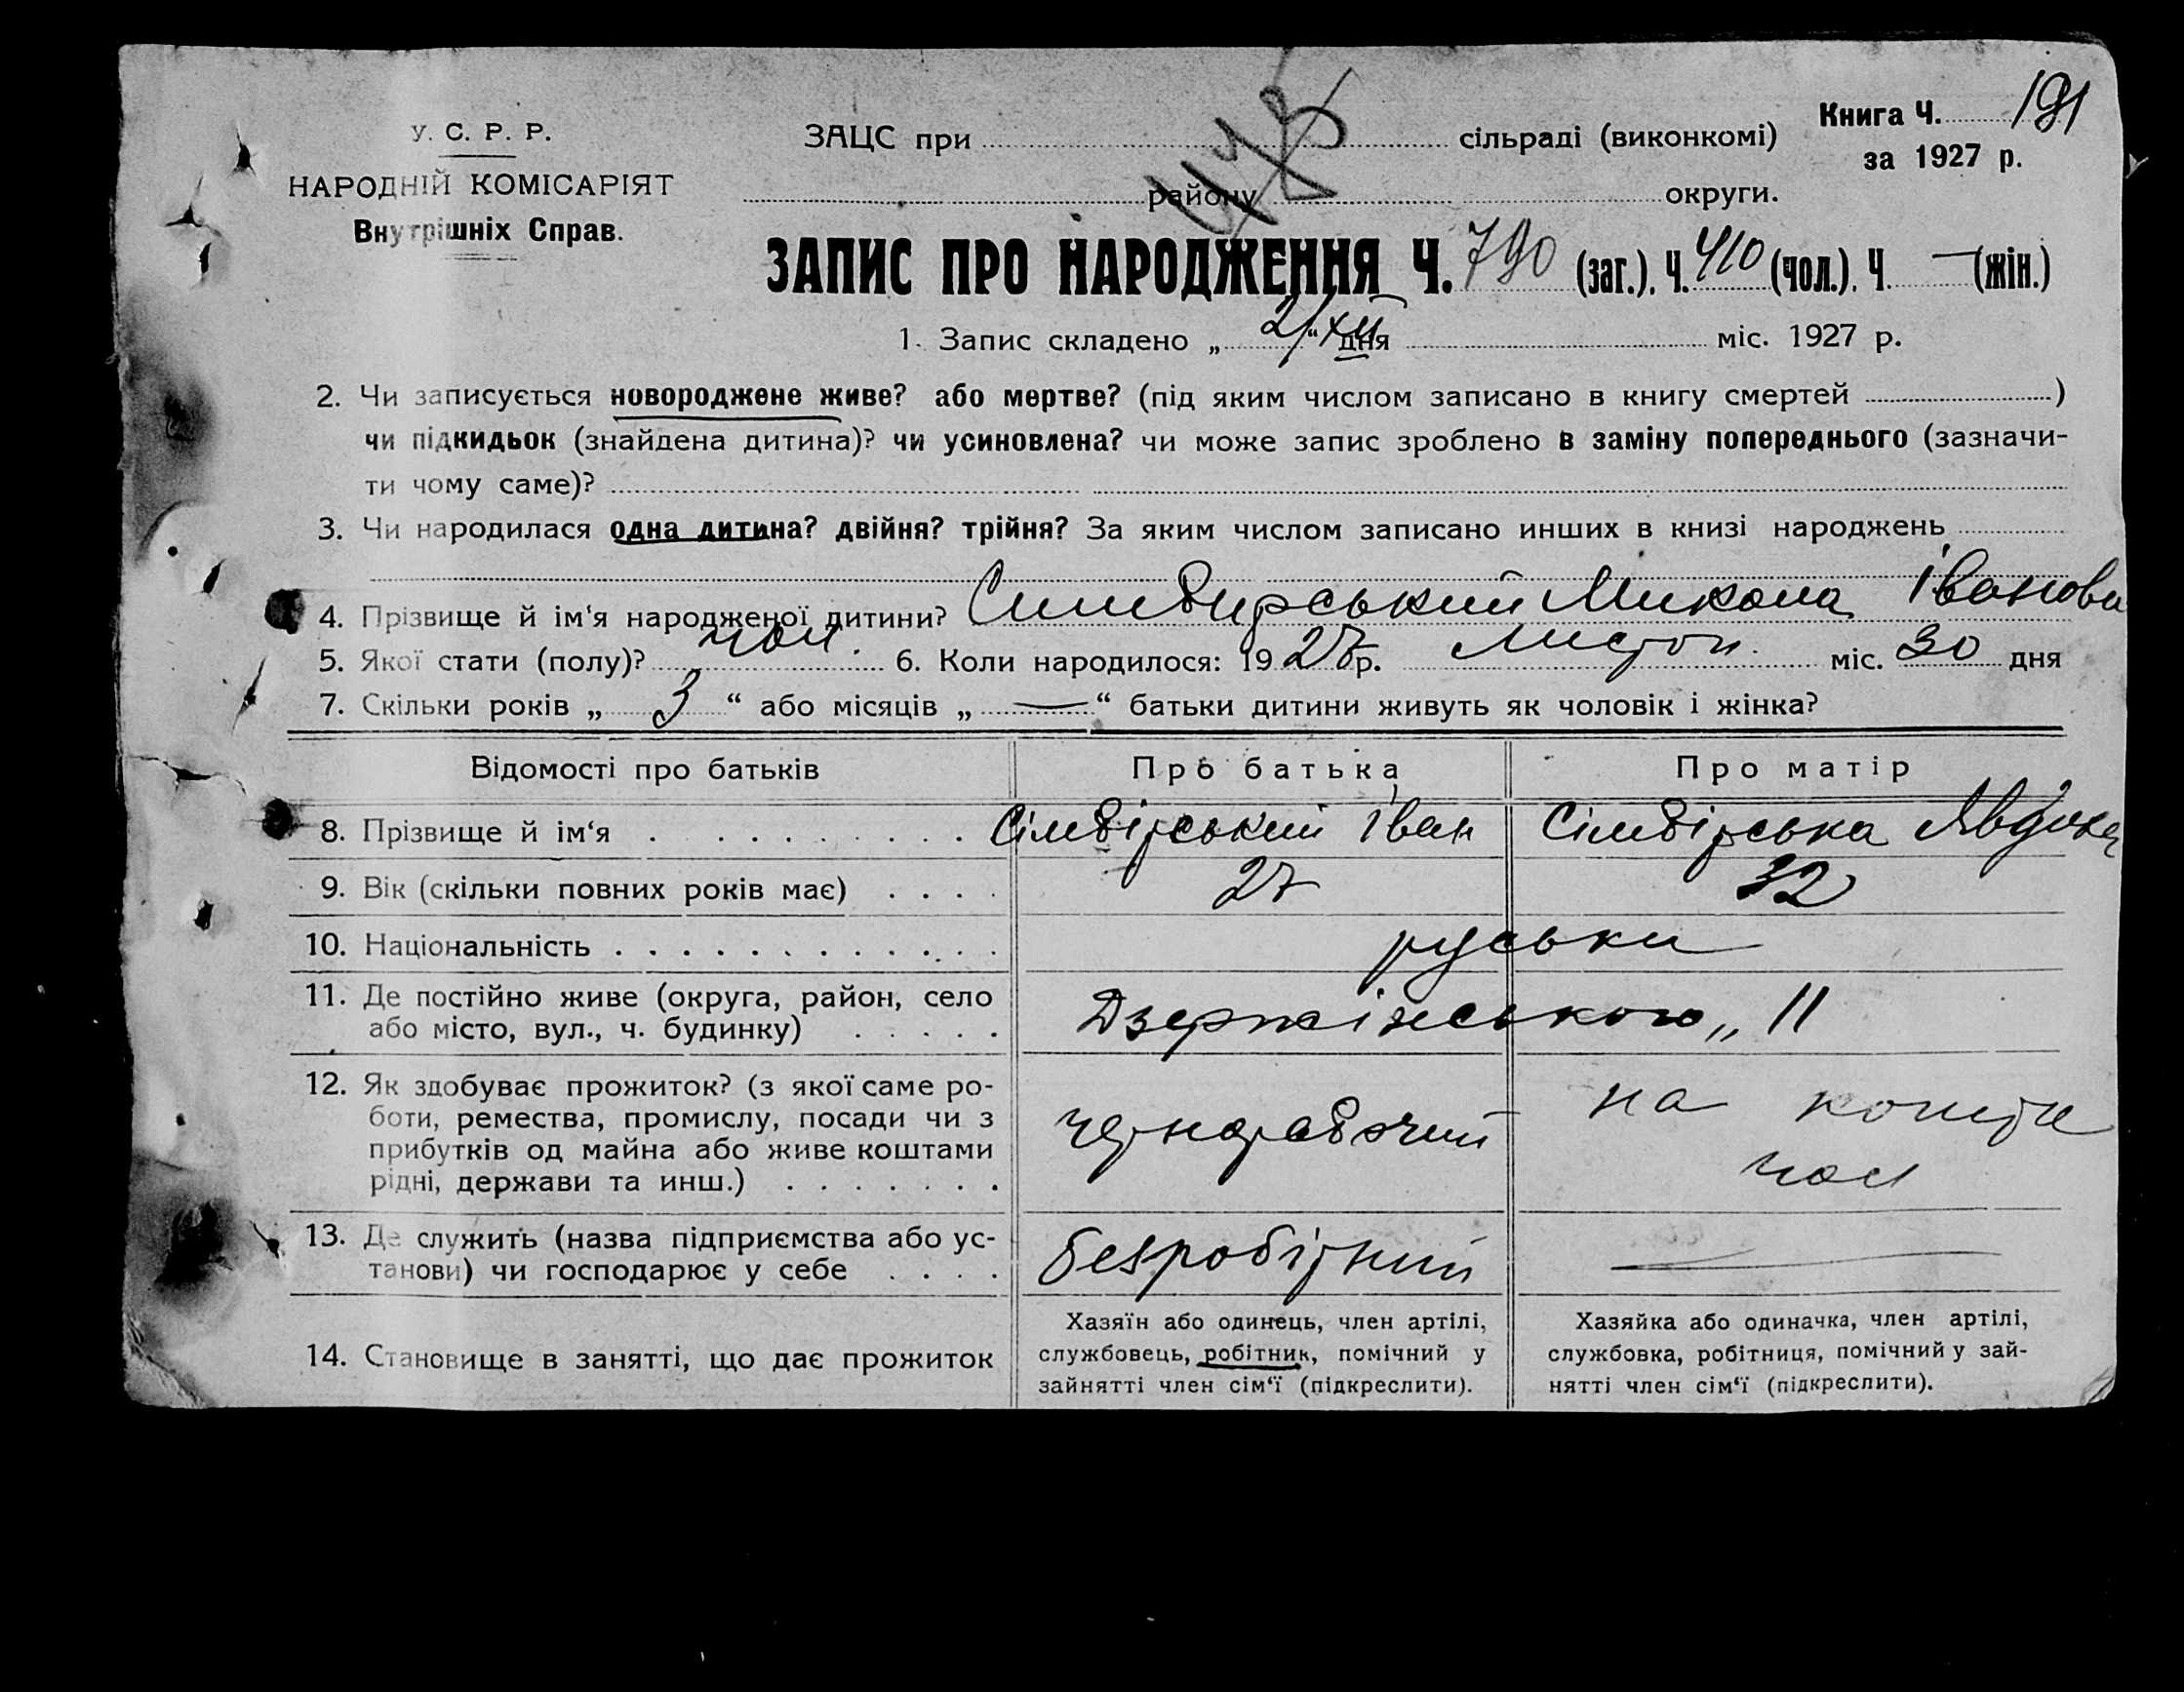 У. С. Р. Р.
НАРОДНІЙ КОМІСАРІЯТ
Внутрішніх Справ.
ЗАЦС при сільраді (виконкомі)
району округи.
Книга Ч. 191
за 1927 р.
ЗАПИС ПРО НАРОДЖЕННЯ Ч. 790 (заг.). Ч. 410 (чол.). Ч. — (жін.)
1. Запис складено „ 2/XII “ дня міс. 1927 р.
2. Чи записується новороджене живе? або мертве? (під яким числом записано в книгу смертей )
чи підкидьок (знайдена дитина)? чи усиновлена? чи може запис зроблено в заміну попереднього (зазначи-
ти чому саме)?
3. Чи народилася одна дитина? двійня? трійня? За яким числом записано инших в книзі народжень
4. Прізвище й ім‘я народженої дитини? Симбирський Микола Іванови
5. Якої стати (полу)? чол. 6. Коли народилося: 1927 р. листоп. міс. 30 дня
7. Скільки років „ 3 “ або місяців „ — “ батьки дитини живуть як чоловік і жінка?
Відомості про батьків Про батька Про матір
8. Прізвище й ім‘я Сімбірський Іван Сімбірська Явдоха
9. Вік (скільки повних років має) 27 32
10. Національність руськи
11. Де постійно живе (округа, район, село
або місто, вул., ч. будинку) Дзержінського „ 11
12. Як здобуває прожиток? (з якої саме ро-
боти, ремества, промислу, посади чи з
прибутків од майна або живе коштами
рідні, держави та инш.) чернорабочий на кошти
чол
13. Де служить (назва підприємства або ус-
танови) чи господарює у себе безробітний —
14. Становище в занятті, що дає прожиток
Хазяїн або одинець, член артілі,
службовець, робітник, помічний у
зайнятті член сім‘ї (підкреслити).
Хазяйка або одиначка, член артілі,
службовка, робітниця, помічний у зай-
нятті член сім‘ї (підкреслити).